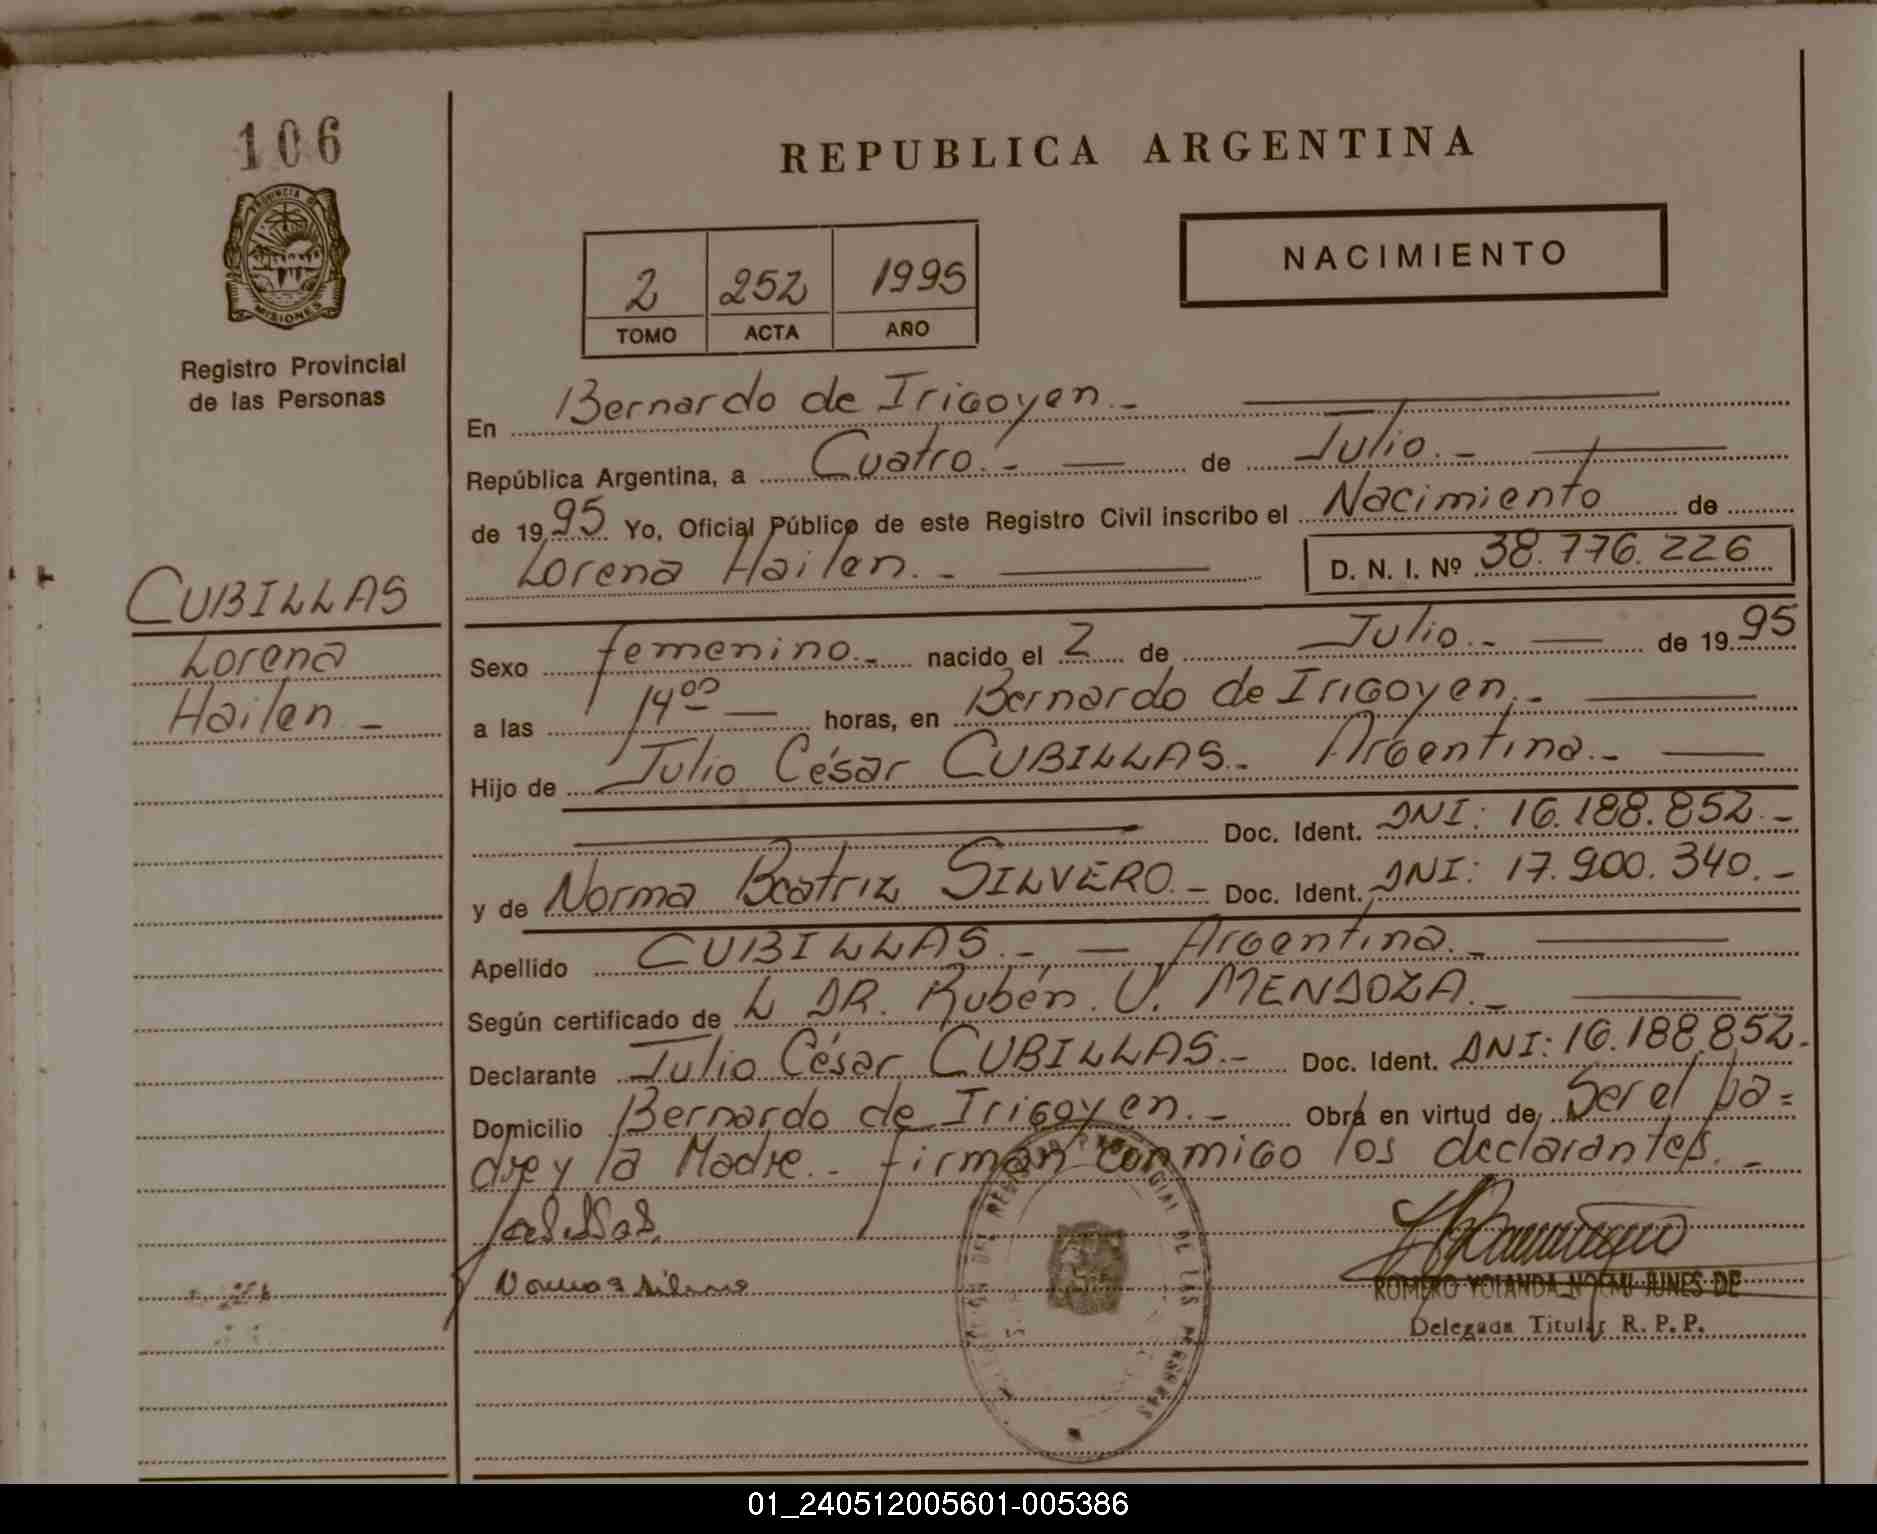 106
PROVINCIA DE
MISIONES
Registro Provincial
de las Personas
CUBILLAS
Lorena
Hailen -
REPUBLICA ARGENTINA
2 252 1995
TOMO ACTA AÑO
NACIMIENTO
En Bernardo de Irigoyen.-
República Argentina, a Cuatro.- de Julio.-
de 1995 Yo, Oficial Público de este Registro Civil inscribo el Nacimiento de
Lorena Hailen.- D. N. I. Nº 38.776.226
Sexo femenino.- nacido el 2 de Julio.- de 1995
a las 14⁰⁰ horas, en Bernardo de Irigoyen.-
Hijo de Julio César CUBILLAS.- Argentina.-
Doc. Ident. DNI: 16.188.852.-
y de Norma Beatriz SILVERO.- Doc. Ident. DNI: 17.900.340.-
Apellido CUBILLAS.- Argentina.-
Según certificado de L DR. Rubén. U. MENDOZA.-
Declarante Julio César CUBILLAS.- Doc. Ident. DNI: 16.188.852.-
Domicilio Bernardo de Irigoyen.- Obra en virtud de Ser el pa=
dre y la Madre.- firman conmigo los declarantes.-
ROMERO YOLANDA NOEMI JUNES DE
Delegada Titular R. P. P.
DE LAS PERSONAS
01_240512005601-005386